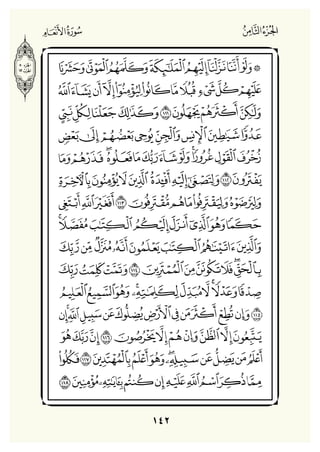 الجُزْءُ الثَّامِنُ
سُورَةُ الأَنْعَامِ
۞ وَلَوْ أَنَّنَا نَزَّلْنَا إِلَيْهِمُ الْمَلَائِكَةَ وَكَلَّمَهُمُ الْمَوْتَىٰ وَحَشَرْنَا
عَلَيْهِمْ كُلَّ شَيْءٍ قُبُلًا مَّا كَانُوا لِيُؤْمِنُوا إِلَّا أَن يَشَاءَ اللَّهُ
وَلَٰكِنَّ أَكْثَرَهُمْ يَجْهَلُونَ ١١١ وَكَذَٰلِكَ جَعَلْنَا لِكُلِّ نَبِيٍّ
عَدُوًّا شَيَاطِينَ الْإِنسِ وَالْجِنِّ يُوحِي بَعْضُهُمْ إِلَىٰ بَعْضٍ
زُخْرُفَ الْقَوْلِ غُرُورًا ۚ وَلَوْ شَاءَ رَبُّكَ مَا فَعَلُوهُ ۖ فَذَرْهُمْ وَمَا
يَفْتَرُونَ ١١٢ وَلِتَصْغَىٰ إِلَيْهِ أَفْئِدَةُ الَّذِينَ لَا يُؤْمِنُونَ بِالْآخِرَةِ
وَلِيَرْضَوْهُ وَلِيَقْتَرِفُوا مَا هُم مُّقْتَرِفُونَ ١١٣ أَفَغَيْرَ اللَّهِ أَبْتَغِي
حَكَمًا وَهُوَ الَّذِي أَنزَلَ إِلَيْكُمُ الْكِتَابَ مُفَصَّلًا ۚ
وَالَّذِينَ آتَيْنَاهُمُ الْكِتَابَ يَعْلَمُونَ أَنَّهُ مُنَزَّلٌ مِّن رَّبِّكَ
بِالْحَقِّ ۖ فَلَا تَكُونَنَّ مِنَ الْمُمْتَرِينَ ١١٤ وَتَمَّتْ كَلِمَتُ رَبِّكَ
صِدْقًا وَعَدْلًا ۚ لَّا مُبَدِّلَ لِكَلِمَاتِهِ ۚ وَهُوَ السَّمِيعُ الْعَلِيمُ
١١٥ وَإِن تُطِعْ أَكْثَرَ مَن فِي الْأَرْضِ يُضِلُّوكَ عَن سَبِيلِ اللَّهِ ۚ إِن
يَتَّبِعُونَ إِلَّا الظَّنَّ وَإِنْ هُمْ إِلَّا يَخْرُصُونَ ١١٦ إِنَّ رَبَّكَ هُوَ
أَعْلَمُ مَن يَضِلُّ عَن سَبِيلِهِ ۖ وَهُوَ أَعْلَمُ بِالْمُهْتَدِينَ ١١٧ فَكُلُوا
مِمَّا ذُكِرَ اسْمُ اللَّهِ عَلَيْهِ إِن كُنتُم بِآيَاتِهِ مُؤْمِنِينَ ١١٨
١٤٢